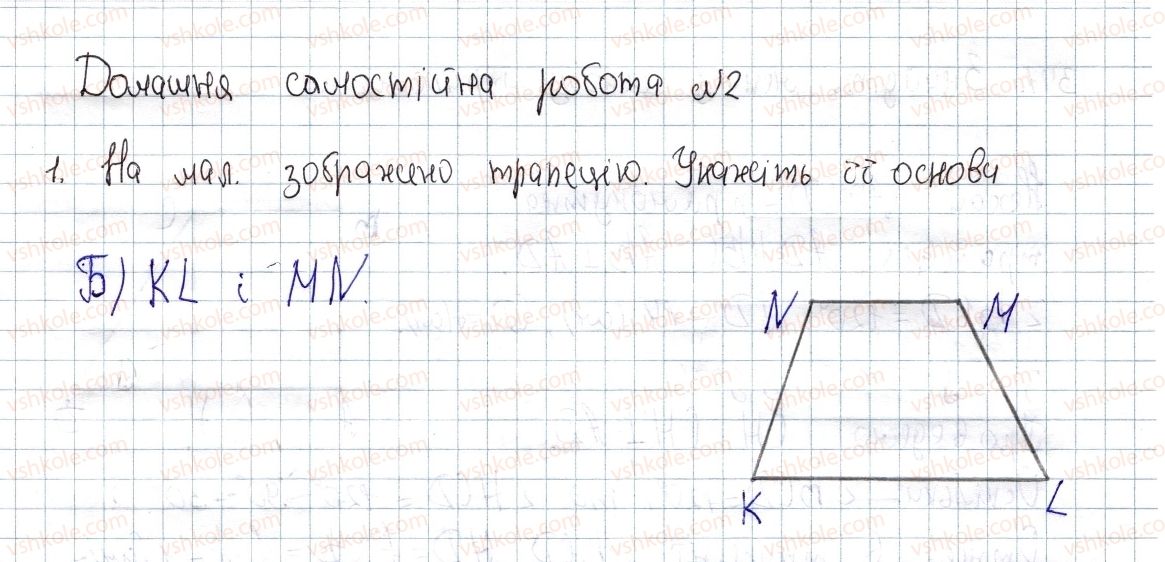 Домашня самостійна робота №2
1. На мал. зображено трапецію. Укажіть її основи
Б) KL і MN.
N M
K L
vshkole.com